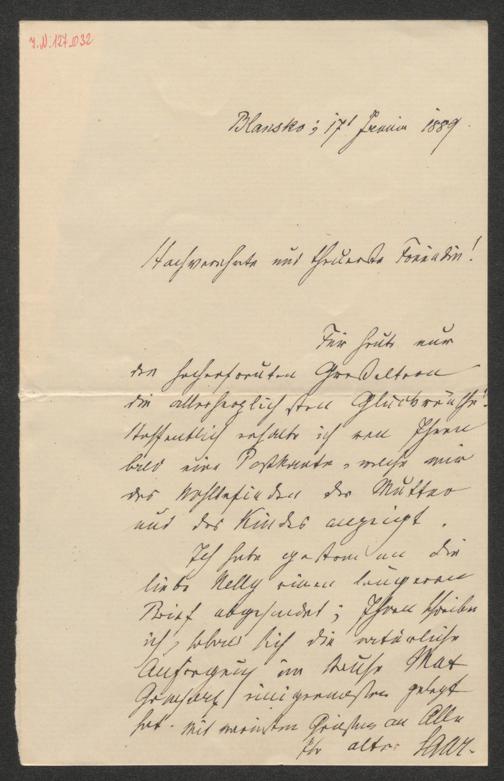 J.N. 127.032
Blansko; 17t Juni 1889.
Hochverehrte und theuerste Freundin!
Für heute nur
den hocherfreuten Großeltern
die allerherzlichsten Glückwünsche!
Hoffentlich erhalte ich von Ihnen
bald eine Postkarte, welche mir
das Wohlbefinden der Mutter
und des Kindes anzeigt.
Ich habe gestern an die
liebe Nelly einen längeren
Brief abgesendet; Ihnen schreibe
ich, sobald sich die natürliche
Aufregung im Hause
einigermaßen gelegt
hat. Mit wärmsten Grüßen an Alle
Ihr alter Saar.